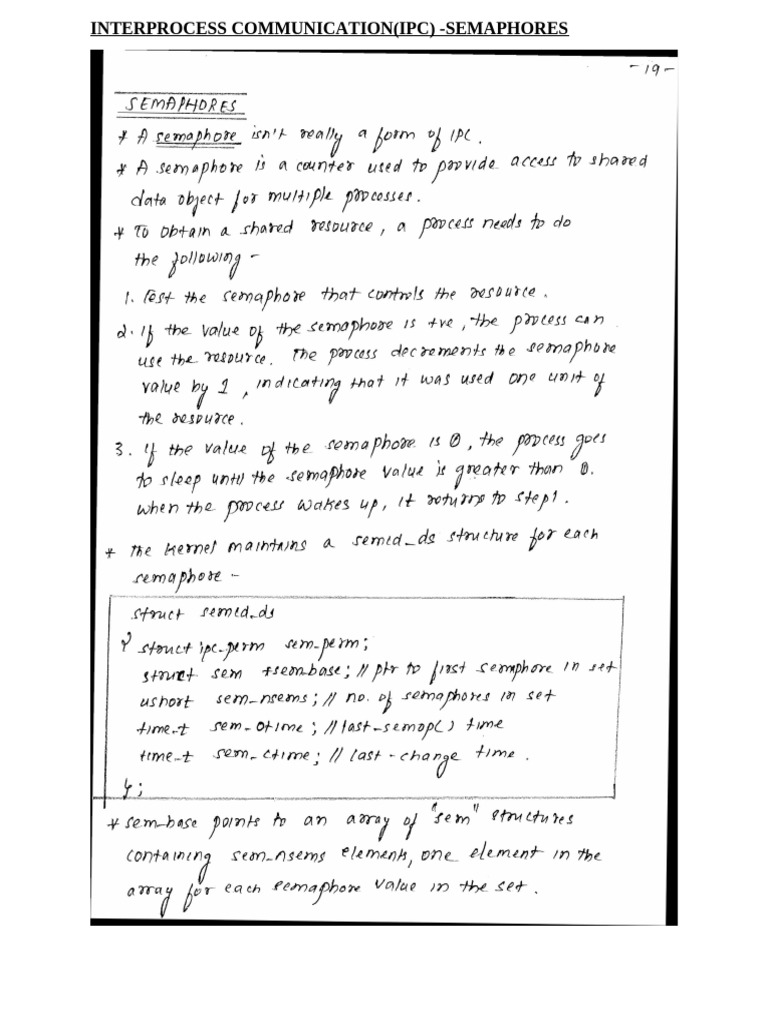 INTERPROCESS COMMUNICATION(IPC) -SEMAPHORES
-19-
SEMAPHORES
* A semaphore isn't really a form of IPC.
* A semaphore is a counter used to provide access to shared
data object for multiple processes.
* To obtain a shared resource, a process needs to do
the following -
1. Test the semaphore that controls the resource.
2. If the value of the semaphore is +ve, the process can
use the resource. The process decrements the semaphore
value by 1, indicating that it was used one unit of
the resource.
3. If the value of the semaphore is 0, the process goes
to sleep until the semaphore value is greater than 0.
when the process wakes up, it returns to step1.
* The kernel maintains a semid_ds structure for each
semaphore -
struct semid_ds
{ struct ipc_perm sem_perm;
struct sem *sem_base; // ptr to first semphore in set
ushort sem_nsems; // no. of semaphores in set
time_t sem_otime; // last-semop() time
time_t sem_ctime; // last-change time.
};
* sem_base points to an array of "sem" structures
containing sem_nsems elements, one element in the
array for each semaphore value in the set.